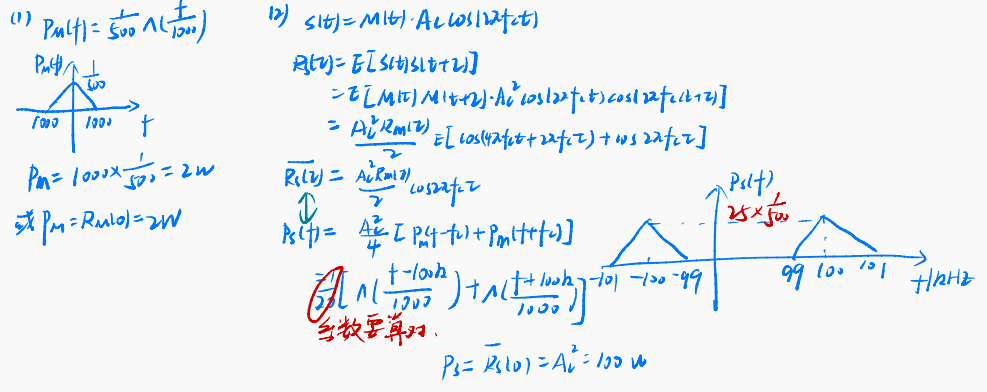 (1) P_M(f) = 1/500 Λ(f/1000)
P_M(f)
1/500
1000 1000 f
P_M = 1000 × 1/500 = 2W
或 P_M = R_M(0) = 2W
(2) S(t) = M(t) · A_c cos(2πf_ct)
R_s(τ) = E[S(t)S(t+τ)]
= E[M(t)M(t+τ) · A_c² cos(2πf_ct) cos(2πf_c(t+τ)]
= A_c² R_M(τ)/2 E[cos(4πf_ct + 2πf_cτ) + cos 2πf_cτ]
R̄_s(τ) = A_c² R_M(τ)/2 cos2πf_cτ
P_s(f) = A_c²/4 [P_M(f-f_c) + P_M(f+f_c)]
1/20 [Λ(f-100k/1000) + Λ(f+100k/1000)]
系数要算对.
P_s(f)
25 × 1/500
-101 -100 -99 99 100 101 f/kHz
P_s = R̄_s(0) = A_c² = 100 W